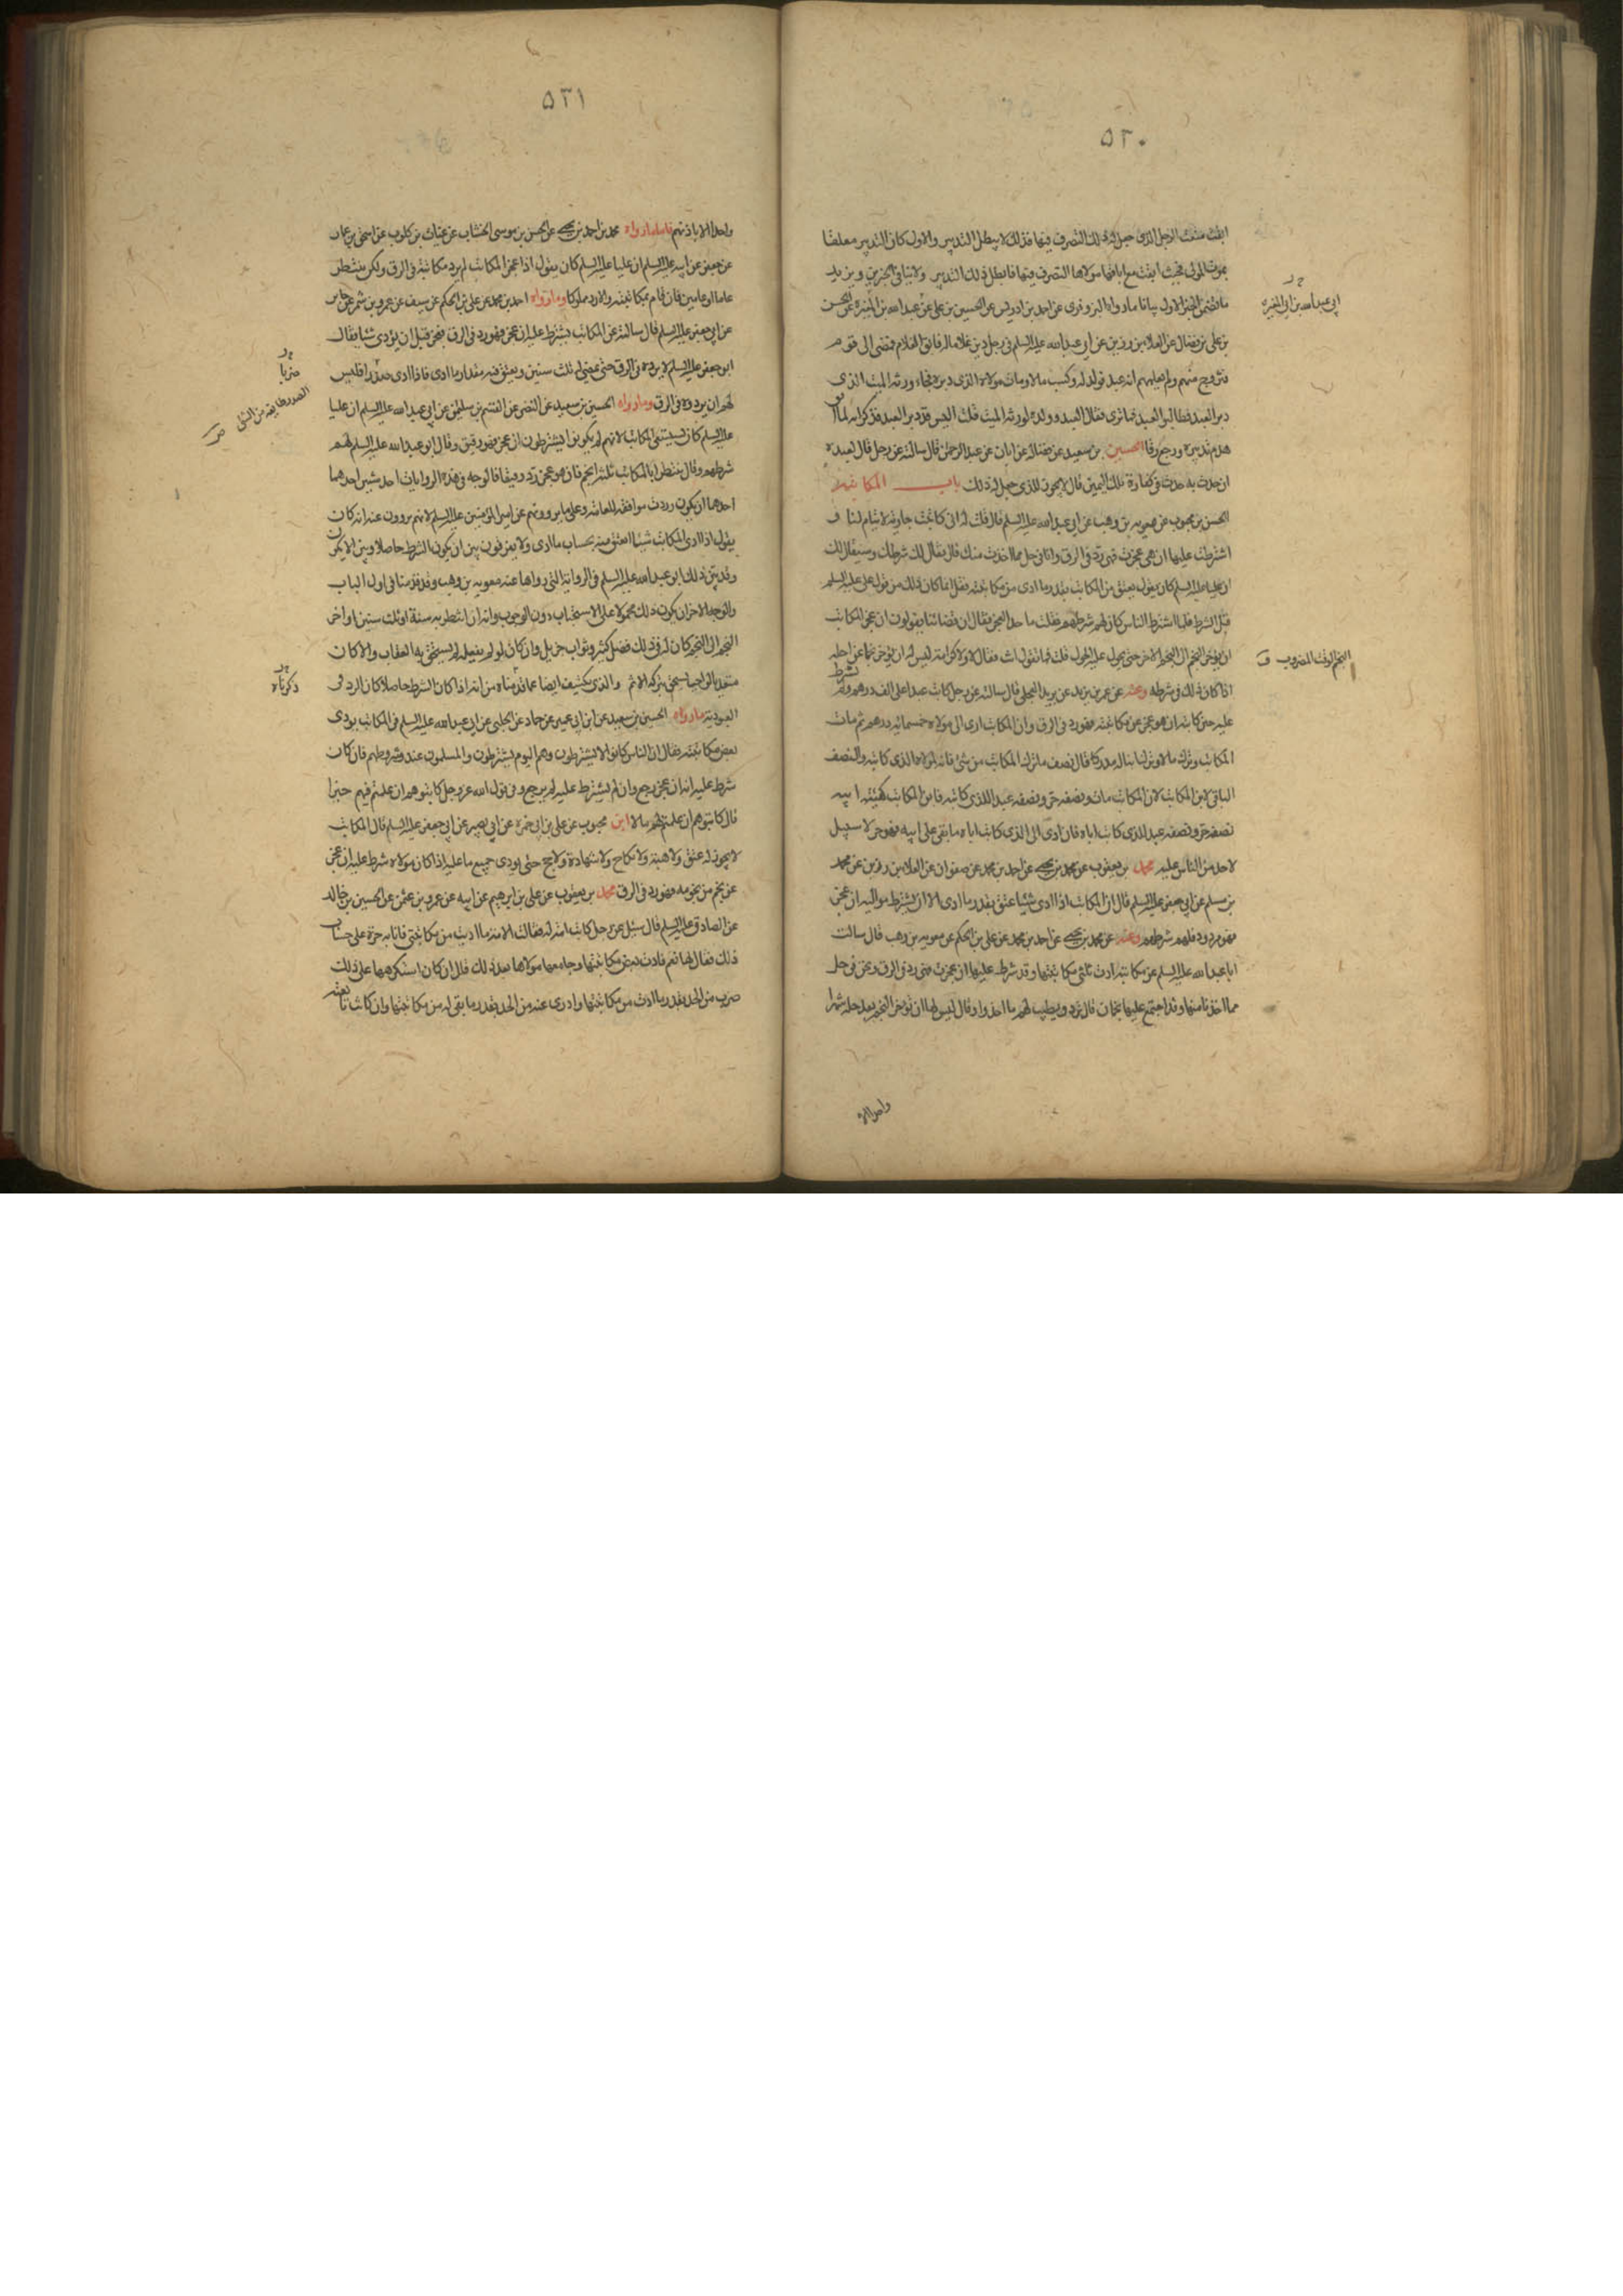 ٥٢٠
ابقت منعت الرجل الذى جعل له ذلك التصرف فيها فذلك لا يبطل التدبير والاول كان التدبير معلقا
بموت المولى فحيث ابقت مع اباقها مولاها التصرف فيها فابطل ذلك التدبير ولا تنافى بين الخبرين ويزيد
ما تضمن الخبر الاول بيانا ما رواه البزوفرى عن احمد بن ادريس عن الحسين بن على عن عبدالله بن المغيرة عن الحسن
ابى عبدالله بن ابى المغيرة
بن على بن فضال عن العلاء بن رزين عن ابى عبدالله عليه السلم فى رجل دبر غلاما له فابق الغلام فمضى الى قوم
فتزوج منهم ولم يعلمهم انه عبد فولد له وكسب مالا ومات مولاه الذى دبره فجاء ورثه الميت الذى
دبر العبد فطالبوا العبد فما ترى فقال العبد وولده لورثه الميت قلت اليس قد دبر العبد فذكر انه لما ابق
هدم تدبيره ورجع رقا الحسين بن سعيد عن فضاله عن ابان عن عبد الرحمن قال سالته عن رجل قال لعبده
ان حدث به حدث فى كفارة تلك اليمين قال لا يجوز للذى جعل له ذلك باب المكاتبة
الحسن بن محبوب عن معويه بن وهب عن ابى عبدالله عليه السلم قال قلت له انى كاتبت جارية لايتام لنا و
اشترطت عليها ان هى عجزت فهى رد فى الرق وانا فى حل مما اخذت منك قال فقال لك شرطك وسيقال لك
ان عليا عليه السلم كان يقول يعتق من المكاتب بقدر ما ادى من مكاتبته فقل انما كان ذلك من قول على عليه السلم
قبل الشرط فلما اشترط الناس كان لهم شرطهم فقلت ما حد العجز فقال ان قضاتنا يقولون ان عجز المكاتب
ان يؤخر النجم الى النجم الاخر حتى يحول عليه الحول قلت فما تقول انت فقال لا ولا كرامة ليس له ان يؤخر نجما عن اجله
النجم الوقت المضروب ق
اذا كان ذلك فى شرطه وعنه عن عمر بن يزيد عن بريد العجلى قال سالته عن رجل كاتب عبدا على الف درهم ولم يشترط
عليه حين كاتبه ان هو عجز عن مكاتبته فهو رد فى الرق وان المكاتب ادى الى مولاه خمسمائه درهم ثم مات
المكاتب وترك مالا وترك ابنا له مدركا قال نصف ما ترك المكاتب من شئ فانه لمولاه الذى كاتبه والنصف
الباقى لابن المكاتب لان المكاتب مات ونصفه حر ونصفه عبد للذى كاتبه فابن المكاتب كهيئة ابيه
نصفه حر ونصفه عبد للذى كاتب اباه فان ادى الى الذى كاتب اباه ما بقى على ابيه فهو حر لا سبيل
لاحد من الناس عليه محمد بن يعقوب عن محمد بن يحيى عن احمد بن محمد عن صفوان عن العلا بن رزين عن محمد
بن مسلم عن ابى جعفر عليه السلم قال ان المكاتب اذا ادى شيئا عتق بقدر ما ادى الا ان يشترط مواليه ان عجز
فهو مردود فلهم شرطهم وعنه عن محمد بن يحيى عن احمد بن محمد عن على بن الحكم عن معويه بن وهب قال سالت
ابا عبدالله عليه السلم عن مكاتبة ادت ثلثى مكاتبتها وقد شرط عليها ان عجزت فهى رد فى الرق ونحن فى حل
مما اخذنا منها وقد اجتمع عليها نجمان قال ترد ويطيب لهم ما اخذوا وقال ليس لها ان تؤخر النجم بعد حله شهرا
واحدا الا
٥٢١
واحدا الا باذنهم فاما ما رواه محمد بن احمد بن يحيى عن الحسن بن موسى الخشاب عن غياث بن كلوب عن اسحق بن عمار
عن جعفر عن ابيه عليه السلم ان عليا عليه السلم كان يقول اذا عجز المكاتب لم يرد مكاتبته فى الرق ولكن ينتظر
عاما او عامين فان قام بمكاتبته والا رد مملوكا وما رواه احمد بن محمد عن على بن الحكم عن سيف عن عمرو بن شمر عن جابر
عن ابى جعفر عليه السلم قال سالته عن المكاتب يشترط عليه ان عجز فهو رد فى الرق فعجز قبل ان يؤدى شيئا فقال
ابو جعفر عليه السلم لا يرده فى الرق حتى يمضى له ثلث سنين ويعتق منه مقدار ما ادى فاذا ادى صدرا فليس
ضربا
الصدر طايفة من الشئ ص
لهم ان يردوه فى الرق وما رواه الحسين بن سعيد عن النضر عن القسم بن سليمن عن ابى عبدالله عليه السلم ان عليا
عليه السلم كان يستسعى المكاتب لانهم لم يكونوا يشترطون ان عجز فهو رقيق وقال ابو عبدالله عليه السلم لهم
شرطهم وقال ينتظر بالمكاتب ثلثة انجم فان هو عجز رد رقيقا فالوجه فى هذه الروايات احد شيئين احدهما
احدهما ان يكون وردت موافقة للعامة وعلى ما يروونهم عن امير المؤمنين عليه السلم لانهم يروون عنه انه كان
يقول اذا ادى المكاتب شيئا اعتق منه بحساب ما ادى ولا يفرقون بين ان يكون الشرط حاصلا وبين ان لا يكون
وقد بين ذلك ابو عبدالله عليه السلم فى الرواية التى رواها عنه معويه بن وهب وقد قدمنا فى اول الباب
والوجه الاخر ان يكون ذلك محمولا على الاستحباب دون الوجوب وانه ان انتظر به سنة او ثلث سنين او اخر
النجم الى النجم كان له فى ذلك فضل كثير وثواب جزيل وان كان لو لم يفعله لم يستحق به العقاب والا كان
متعديا لواجب يستحق بتركه الاثم والذى يكشف ايضا عما قدمناه من انه اذا كان الشرط حاصلا كان الرد فى
ذكرناه
العبودية ما رواه الحسين بن سعيد عن ابن ابى عمير عن حماد عن الحلبى عن ابى عبدالله عليه السلم فى المكاتب يودى
بعض مكاتبته فقال ان الناس كانوا لا يشترطون وهم اليوم يشترطون والمسلمون عند شروطهم فان كان
شرط عليه انه ان عجز رجع وان لم يشترط عليه لم يرجع وفى قول الله عز وجل كاتبوهم ان علمتم فيهم خيرا
قال كاتبوهم ان علمتم لهم مالا ابن محبوب عن على بن ابى حمزة عن ابى بصير عن ابى جعفر عليه السلم قال المكاتب
لا يجوز له عتق ولا هبة ولا نكاح ولا شهادة ولا حج حتى يودى جميع ما عليه اذا كان مولاه شرط عليه ان عجز
عن نجم من نجومه فهو رد فى الرق محمد بن يعقوب عن على بن ابرهيم عن ابيه عن عمرو بن عثمن عن الحسين بن خالد
عن الصادق عليه السلم قال سئل عن رجل كاتب امة له فقالت الامة ما اديت من مكاتبتى فانا به حرة على حساب
ذلك فقال لها نعم فادت بعض مكاتبتها وجامعها مولاها بعد ذلك قال ان كان استكرهها على ذلك
ضرب من الحد بقدر ما ادت من مكاتبتها وادرى عنه من الحد بقدر ما بقى له من مكاتبتها وان كانت تابعته